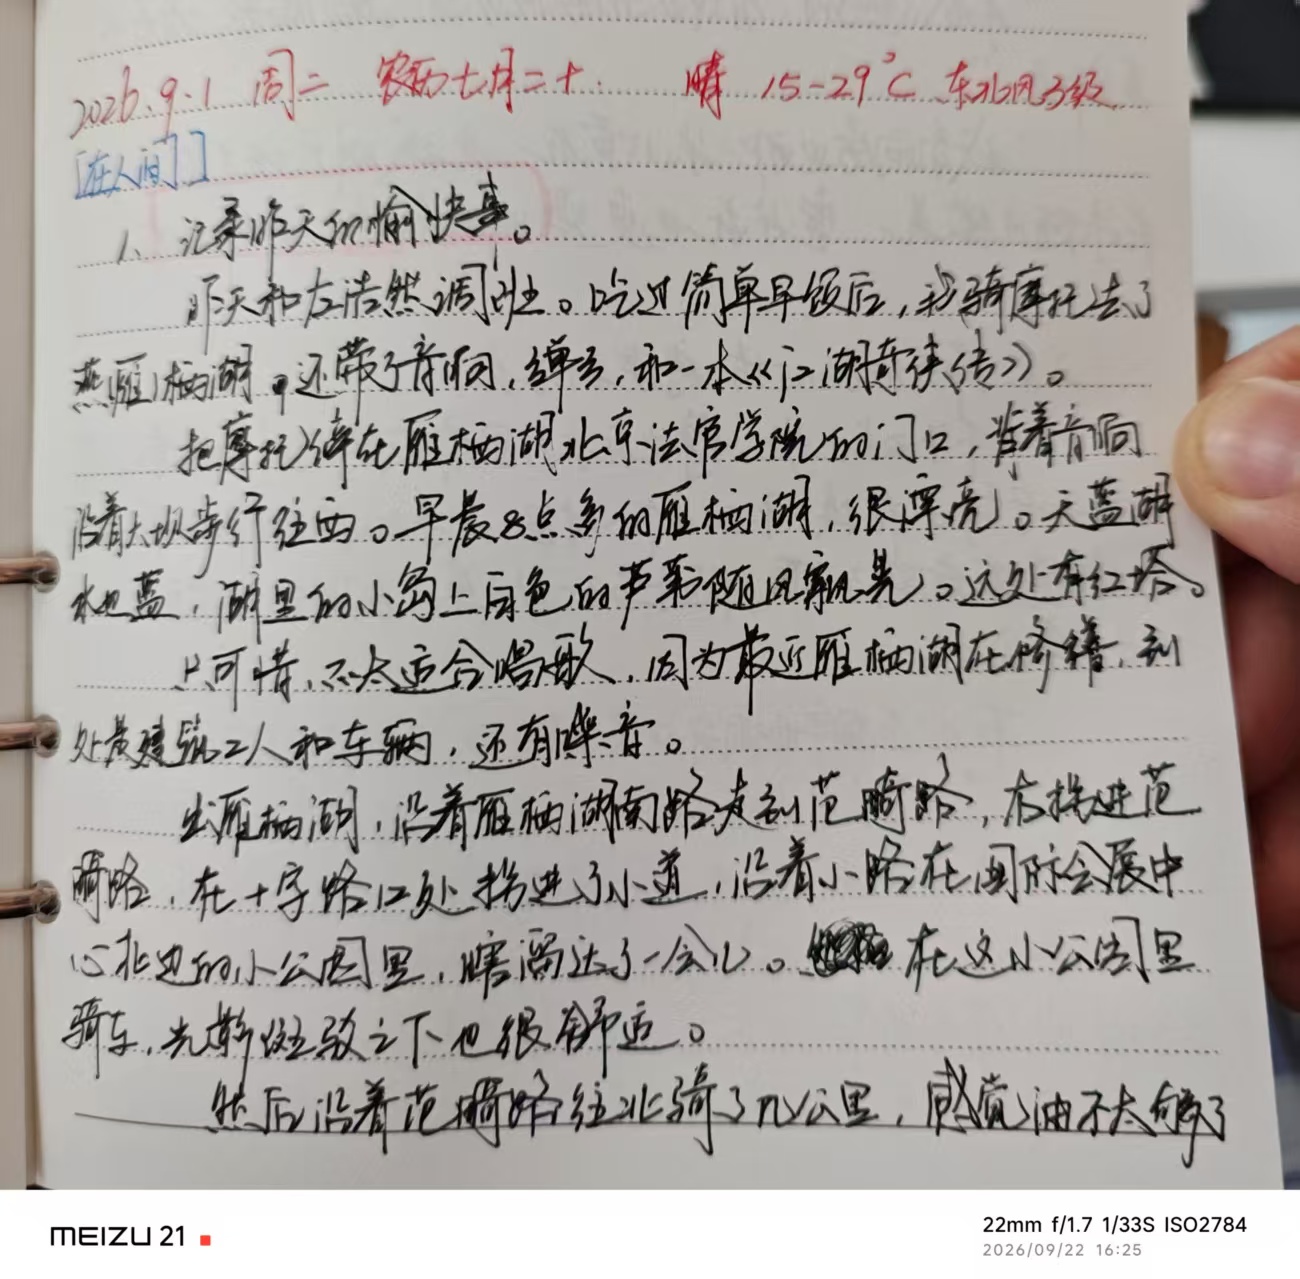 2026.9.1 周二 农历七月二十. 晴 15-29°C 东北风3级
[在人间]]
1、记录昨天的愉快事。
昨天和左浩然调班。吃过简单早饭后，我骑摩托去了
燕雁栖湖。还带了音响，弹弓，和一本《江湖奇侠传》。
把摩托停在雁栖湖北京法官学院的门口，背着音响
沿着大坝步行往西。早晨8点多的雁栖湖，很漂亮。天蓝湖
水也蓝，湖里的小岛上白色的芦苇随风飘晃。远处有红塔。
只可惜，不太适合唱歌，因为最近雁栖湖在修缮，到
处是建筑工人和车辆，还有噪音。
出雁栖湖，沿着雁栖湖南路走到范崎路，右拐进范
崎路，在十字路口处拐进了小道，沿着小路在国际会展中
心北边的小公园里，瞎溜达了一会儿。在这小公园里
骑车，光影斑驳之下也很舒适。
然后沿着范崎路往北骑了几公里，感觉油不太够了
MEIZU 21
22mm f/1.7 1/33S ISO2784
2026/09/22 16:25